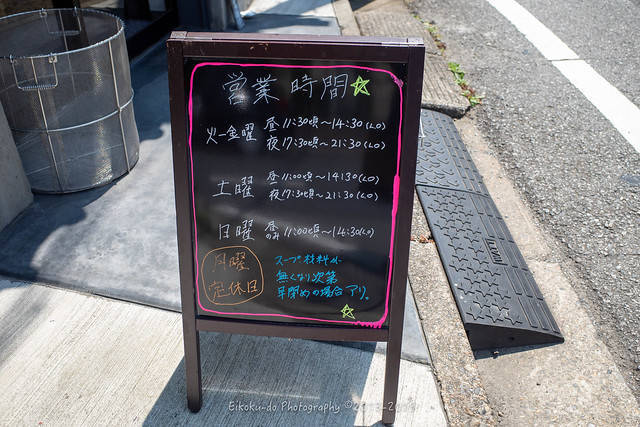 営業時間☆
火〜金曜 昼 11:30頃〜14:30(LO)
夜 17:30頃〜21:30(LO)
土曜 昼 11:00頃〜14:30(LO)
夜 17:30頃〜21:30(LO)
日曜 昼のみ 11:00頃〜14:30(LO)
月曜
定休日
スープ材料が
無くなり次第
早閉めの場合アリ。
☆
Eikoku-do Photography ©